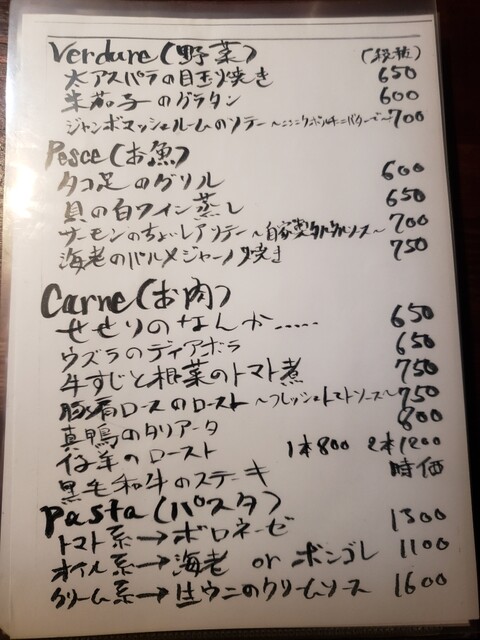 Verdure(野菜) (税抜)
太アスパラの目玉焼き 650
米茄子のグラタン 600
ジャンボマッシュルームのソテー 〜ニンニクとポルチーニバターで〜 700
Pesce(お魚)
タコ足のグリル 600
貝の白ワイン蒸し 650
サーモンのちょいレアソテー 〜自家製タルタルソース〜 700
海老のパルメジャーノ焼き 750
Carne(お肉)
せせりのなんか..... 650
ウズラのディアボラ 650
牛すじと根菜のトマト煮 750
豚肩ロースのロースト 〜フレッシュトマトソース〜 750
真鴨のタリアータ 800
仔羊のロースト 1本800 2本1200
黒毛和牛のステーキ 時価
Pasta(パスタ)
トマト系→ボロネーゼ 1300
オイル系→海老 or ボンゴレ 1100
クリーム系→生ウニのクリームソース 1600